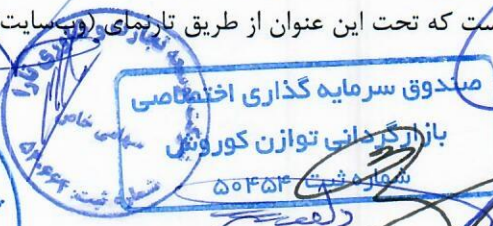 ست که تحت این عنوان از طریق تارنمای (وب‌سایت
صندوق سرمایه گذاری اختصاصی
بازارگردانی توازن کوروش
شماره ثبت ۵۰۴۵۴
سهامی خاص
شماره ثبت: